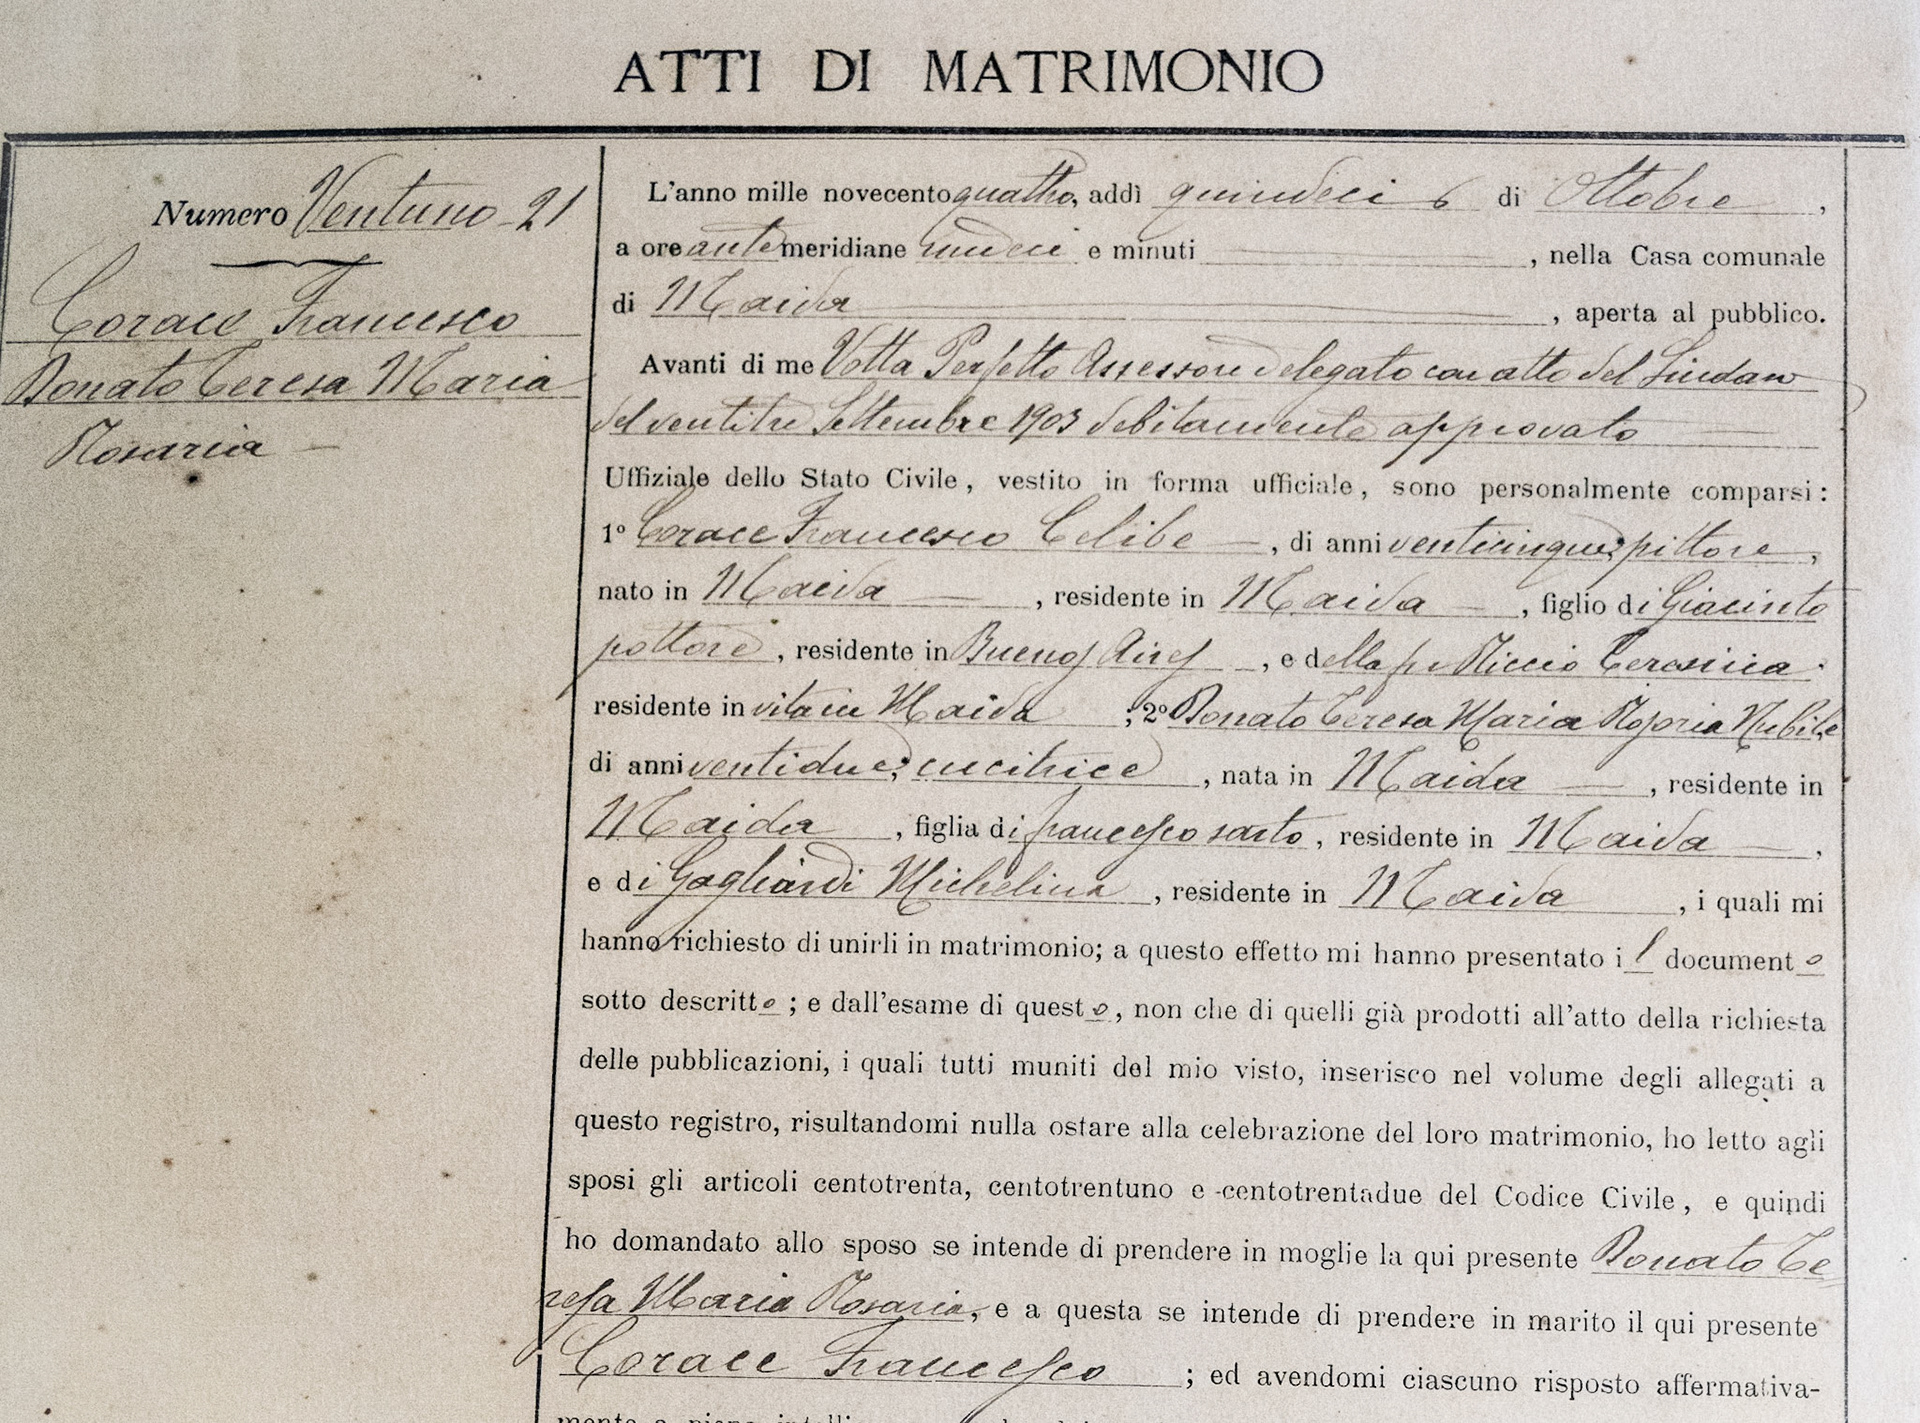 ATTI DI MATRIMONIO
Numero Ventuno 21
Corace Francesco
Donato Teresa Maria
Rosaria
L'anno mille novecento quattro, addì quindici di Ottobre,
a ore antemeridiane undici e minuti , nella Casa comunale
di Maida , aperta al pubblico.
Avanti di me Votta Perfetto Assessore delegato con atto del Sindaco
del ventitre Settembre 1903 debitamente approvato
Uffiziale dello Stato Civile, vestito in forma ufficiale, sono personalmente comparsi:
1º Corace Francesco Celibe , di anni venticinque, pittore,
nato in Maida , residente in Maida , figlio di Giacinto
pittore , residente in Buenos Aires , e della Riccio Teresina
residente in vita in Maida ; 2º Donato Teresa Maria Rosaria Nubile
di anni ventidue, cucitrice , nata in Maida , residente in
Maida , figlia di francesco sarto, residente in Maida ,
e di Gagliardi Michelina , residente in Maida , i quali mi
hanno richiesto di unirli in matrimonio; a questo effetto mi hanno presentato il documento
sotto descritto; e dall'esame di questo, non che di quelli già prodotti all'atto della richiesta
delle pubblicazioni, i quali tutti muniti del mio visto, inserisco nel volume degli allegati a
questo registro, risultandomi nulla ostare alla celebrazione del loro matrimonio, ho letto agli
sposi gli articoli centotrenta, centotrentuno e centotrentadue del Codice Civile, e quindi
ho domandato allo sposo se intende di prendere in moglie la qui presente Donato Te
resa Maria Rosaria, e a questa se intende di prendere in marito il qui presente
Corace Francesco ; ed avendomi ciascuno risposto affermativa-